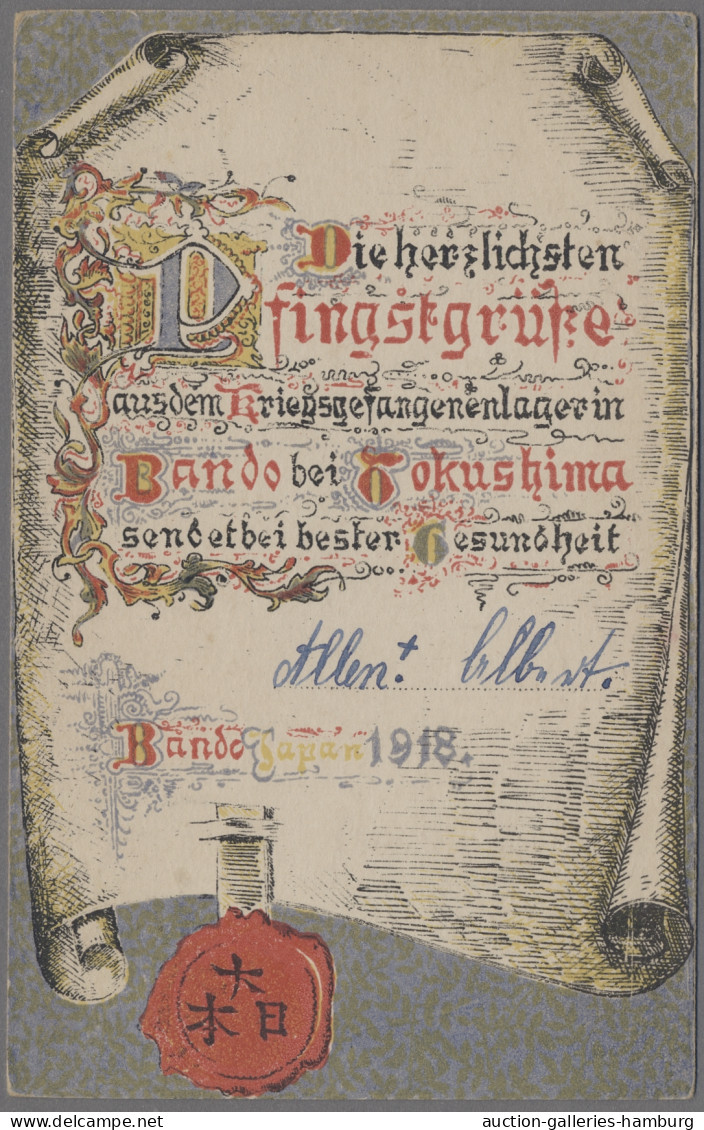 Die herzlichsten
Pfingstgrüße
aus dem Kriegsgefangenenlager in
Bando bei Tokushima
sendet bei bester Gesundheit
Albert.
Bando Japan 1918.
大
日
本
auction-galleries-hamburg